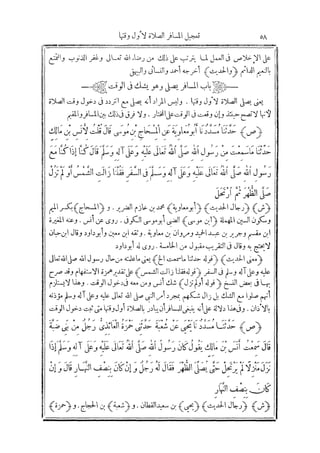 ٥٨ تعجيل المسافر الصلاة لأول وقتها
على الإخلاص فى العمل لما يترتب على ذلك من رضاء الله تعالى وغفر الذنوب والتمتع
بالنعيم الدائم (والحديث) أخرجه أحمد والنسائى والبيهقى
باب المسافر يصلى وهو يشك فى الوقت
يعنى يصلى الصلاة لأول وقتها. وليس المراد أنه يصلى مع التردد فى دخول وقت الصلاة
لأنها لا تصح حينئذ وإن وقعت فى الوقت على المختار. ولا فرق فى ذلك بين المسافر والمقيم
(ص) حَدَّثَنَا مُسَدَّدٌ نَا أَبُو مُعَاوِيَةَ عَنِ الْمِسْحَاجِ بْنِ مُوسَى قَالَ قُلْتُ لِأَنَسِ بْنِ مَالِكٍ
حَدِّثْنَا مَا سَمِعْتَ مِنْ رَسُولِ اللهِ صَلَّى اللهُ تَعَالَى عَلَيْهِ وَعَلَى آلِهِ وَسَلَّمَ قَالَ كُنَّا إِذَا كُنَّا مَعَ
رَسُولِ اللهِ صَلَّى اللهُ تَعَالَى عَلَيْهِ وَعَلَى آلِهِ وَسَلَّمَ فِى السَّفَرِ فَقُلْنَا زَالَتِ الشَّمْسُ أَوْ لَمْ تَزُلْ
صَلَّى الظُّهْرَ ثُمَّ ارْتَحَلَ
(ش) (رجال الحديث) (أبو معاوية) محمد بن خازم الضرير. و (المسحاج) بكسر الميم
وسكون السين المهملة (ابن موسى) الضبى أبو موسى الكوفى. روى عن أنس. وعنه المغيرة
ابن مقسم وجرير بن عبد الحميد ومروان بن معاوية. وثقه ابن معين وأبو داود وقال ابن حبان
لا يحتج به وقال فى التقريب مقبول من الخامسة. روى له أبو داود
(معنى الحديث) (قوله حدثنا ما سمعت الخ) يعنى ما علمته من حال رسول الله صلى الله تعالى
عليه وعلى آله وسلم فى السفر (قوله فقلنا زالت الشمس) على تقدير همزة الاستفهام وقد صرح
بها فى بعض النسخ (قوله أو لم تزل) شك أنس ومن معه فى دخول الوقت. وهذا لا يستلزم
أنهم صلوا مع الشك بل زال شكهم بمجرد أمر النبى صلى الله تعالى عليه وعلى آله وسلم مؤذنه
بالأذان. وفى هذا دلالة على أنه ينبغى للمسافر أن يبادر بالصلاة أول وقتها متى ثبت دخول الوقت
(ص) حَدَّثَنَا مُسَدَّدٌ نَا يَحْيَى عَنْ شُعْبَةَ حَدَّثَنِى حَمْزَةُ الْعَائِذِىُّ رَجُلٌ مِنْ بَنِى ضَبَّةَ
قَالَ سَمِعْتُ أَنَسَ بْنَ مَالِكٍ يَقُولُ كَانَ رَسُولُ اللهِ صَلَّى اللهُ تَعَالَى عَلَيْهِ وَعَلَى آلِهِ وَسَلَّمَ إِذَا
نَزَلَ مَنْزِلًا لَمْ يَرْتَحِلْ حَتَّى يُصَلِّىَ الظُّهْرَ فَقَالَ لَهُ رَجُلٌ وَإِنْ كَانَ بِنِصْفِ النَّهَارِ قَالَ وَإِنْ
كَانَ بِنِصْفِ النَّهَارِ
(ش) (رجال الحديث) (يحيى) بن سعيد القطان. و (شعبة) بن الحجاج. و (حمزة)